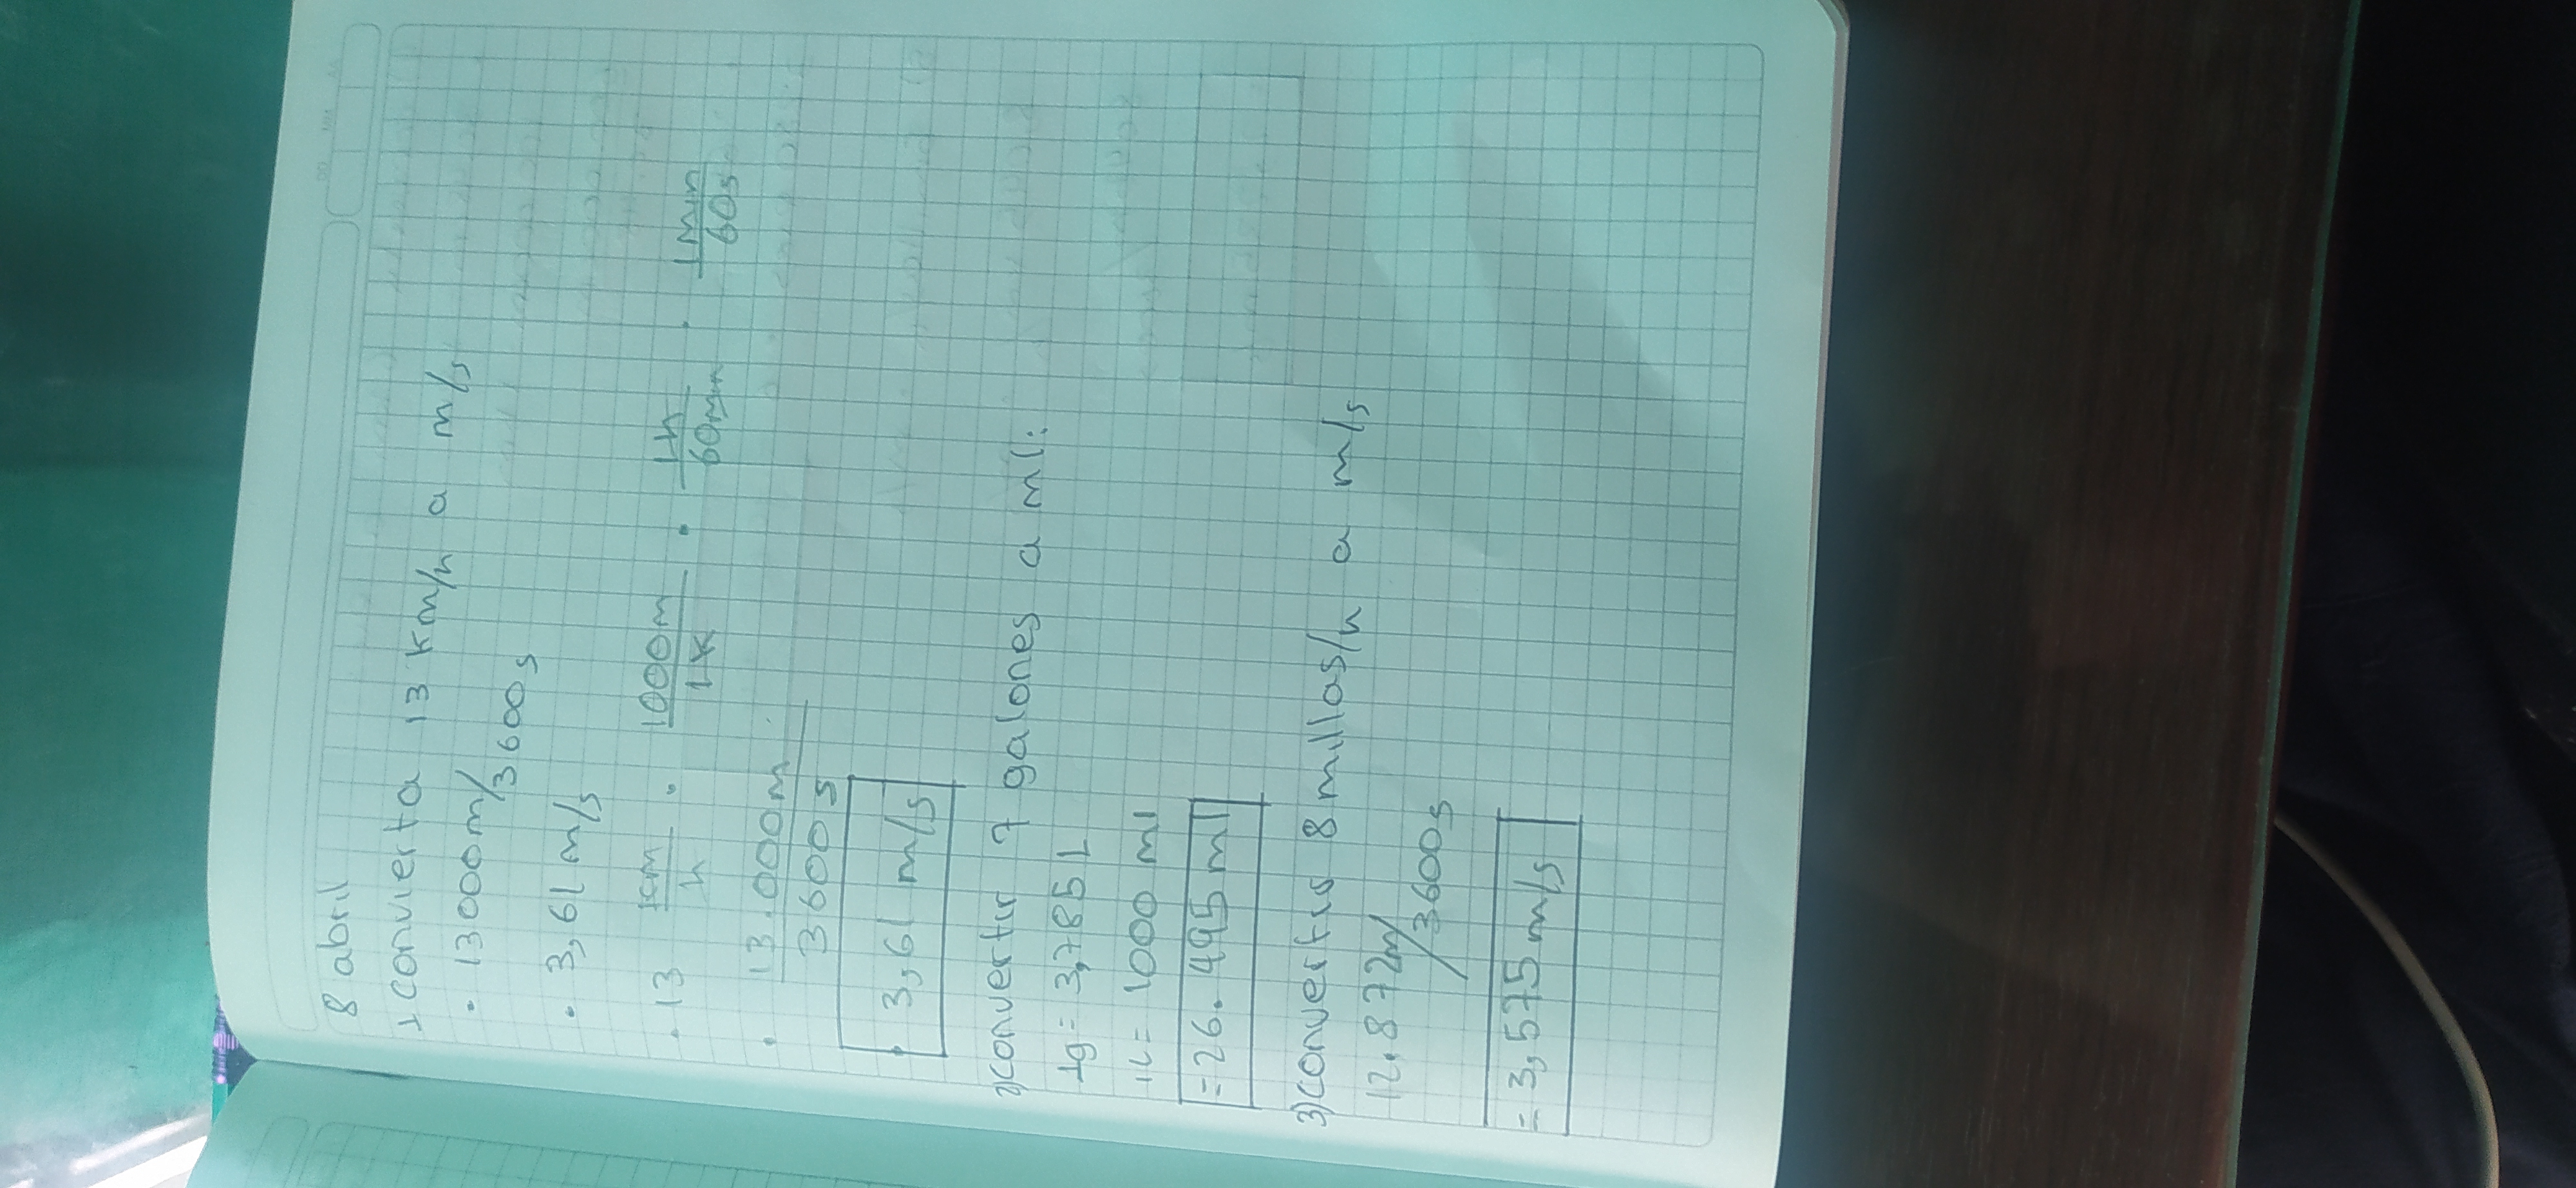 8 abril
1 convierta 13 km/h a m/s
• 13000m/3600s
• 3,61 m/s
• 13 km/h • 1000m/1K • 1h/60min • 1min/60s
• 13.000m/3600s
• 3,61 m/s
2) convertir 7 galones a ml:
1g = 3,785 L
1L = 1000 ml
= 26.495 ml
3) convertir 8 millas/h a m/s
12.872m/3600s
= 3,575 m/s